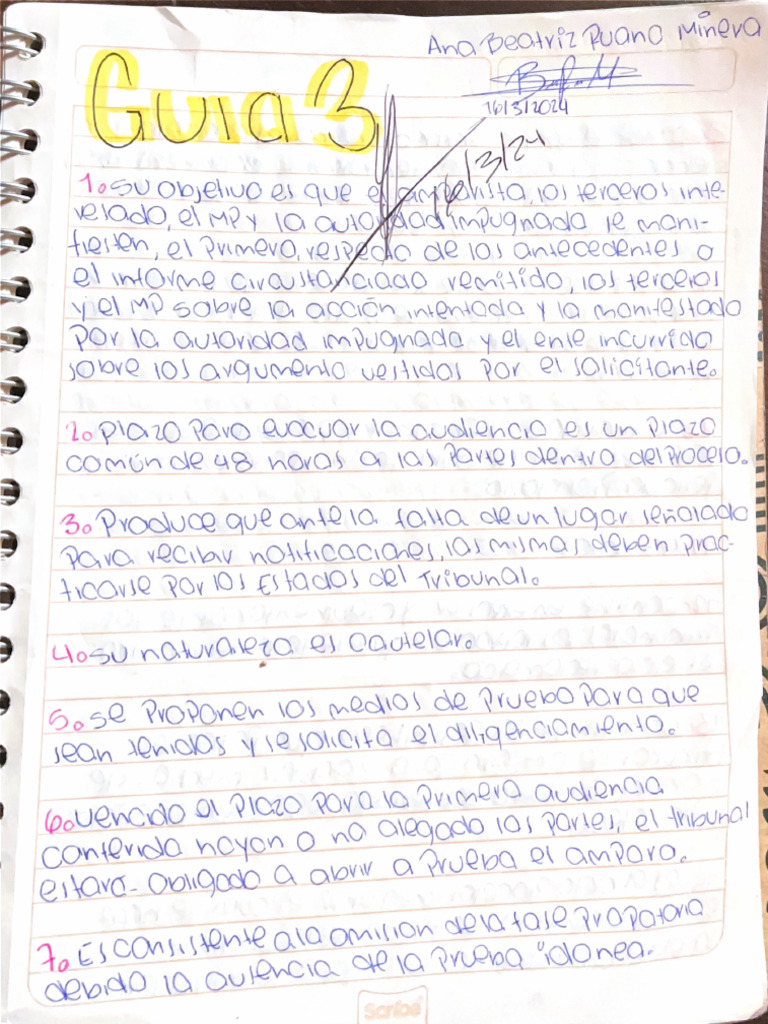 Ana Beatriz Ruano Minera
16/3/2024
Guia 3
16/3/24
1. Su objetivo es que el amparista, los terceros inte-
relado, el MP y la autoridad impugnada se mani-
fiesten, el primero, respecto de los antecedentes o
el informe circustanciado remitido, los terceros
y el MP sobre la acción intentada y la manifestado
por la autoridad impugnada y el ente incurrido
sobre los argumento vestidos por el solicitante.
2. Plazo para evacuar la audiencia es un plazo
común de 48 horas a las partes dentro del proceso.
3. Produce que ante la falta de un lugar señalado
para recibir notificaciones, las mismas deben prac-
ticarse por los Estados del Tribunal.
4. su naturaleza es cautelar.
5. se proponen los medios de prueba para que
sean tenidos y se solicita el diligenciamiento.
6. vencido el plazo para la primera audiencia
conferida hayan o no alegado las partes, el tribunal
estará obligado a abrir a prueba el amparo.
7. Es consistente a la omision de la fase propatoria
debido la ausencia de la prueba "idonea.
Scribe